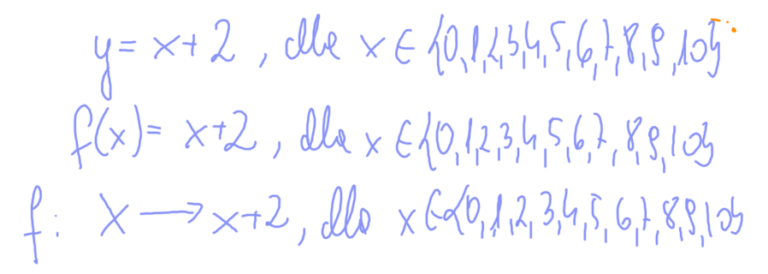 y = x+2 , dla x ∈ {0,1,2,3,4,5,6,7,8,9,10}
f(x) = x+2 , dla x ∈ {0,1,2,3,4,5,6,7,8,9,10}
f: x → x+2, dla x ∈ {0,1,2,3,4,5,6,7,8,9,10}